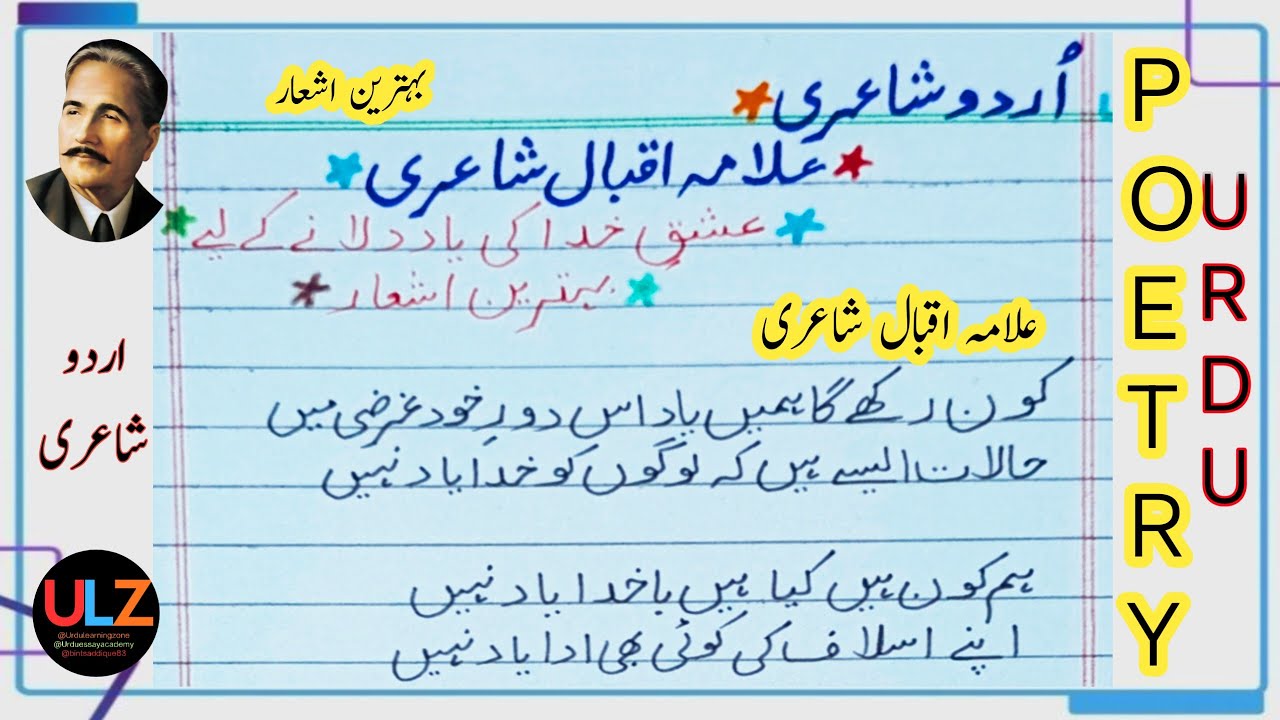 اُردو شاعری
بہترین اشعار
علامہ اقبال شاعری
عشقِ خدا کی یاد دلانے کے لیے
بہترین اشعار
علامہ اقبال شاعری
کون رکھے گا ہمیں یاد اس دورِ خود غرضی میں
حالات ایسے ہیں کہ لوگوں کو خدا یاد نہیں
ہم کون ہیں کیا ہیں باخدا یاد نہیں
اپنے اسلاف کی کوئی بھی ادا یاد نہیں
اردو
شاعری
ULZ
@Urdulearningzone
@Urduessayacademy
@bintsaddique83
POETRY
URDU